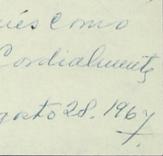 ués como
Cordialmente
gosto 28, 1967